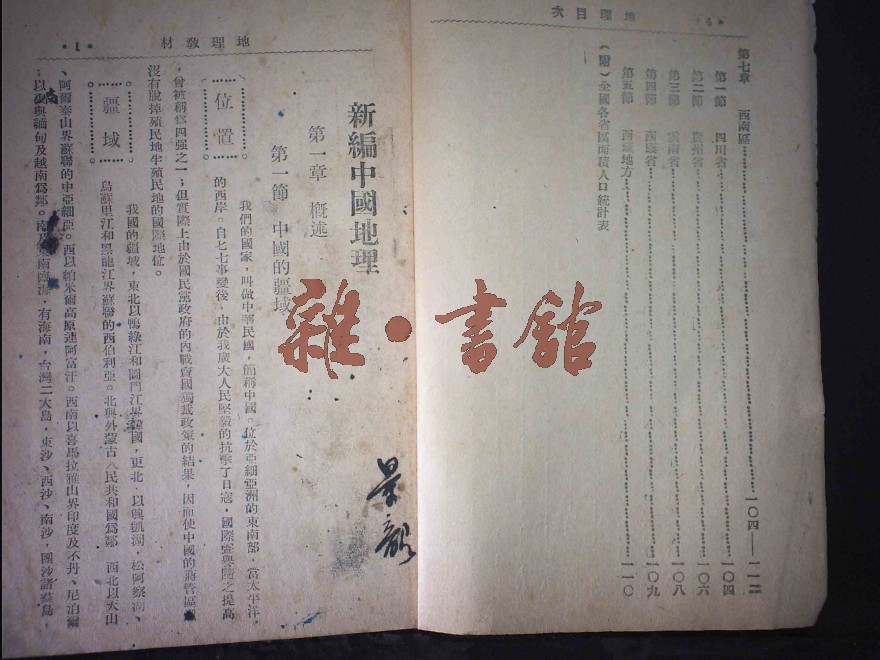 地理目次
第七章 西南區……一〇四——一一二
第一節 四川省……一〇四
第二節 貴州省……一〇六
第三節 雲南省……一〇八
第四節 西康省……一〇九
第五節 西藏地方……一一〇
(附)全國各省區面積人口統計表
雜·書館
景韶
地理教材 ·1·
新編中國地理
第一章 概述
第一節 中國的疆域
位置
我們的國家,叫做中華民國,簡稱中國。位於亞細亞洲的東南部,當太平洋
的西岸。自七七事變後,由於我廣大人民堅毅的抗擊了日寇,國際聲譽隨之提高
,曾被稱為四強之一;但實際上由於國民黨政府的內戰賣國獨裁政策的結果,因而使中國的蔣管區
沒有脫掉殖民地半殖民地的國際地位。
疆域
我國的疆域,東北以鴨綠江和圖門江界韓國,更北,以興凱湖,松阿察湖、
烏蘇里江和黑龍江界蘇聯的西伯利亞。北與外蒙古人民共和國為鄰,西北以天山
、阿爾泰山界蘇聯的中亞細亞。西以帕米爾高原連阿富汗。西南以喜馬拉雅山界印度及不丹、尼泊爾
;以南與緬甸及越南為鄰。南及東南臨海,有海南,台灣二大島,東沙、西沙、南沙,團沙諸羣島,